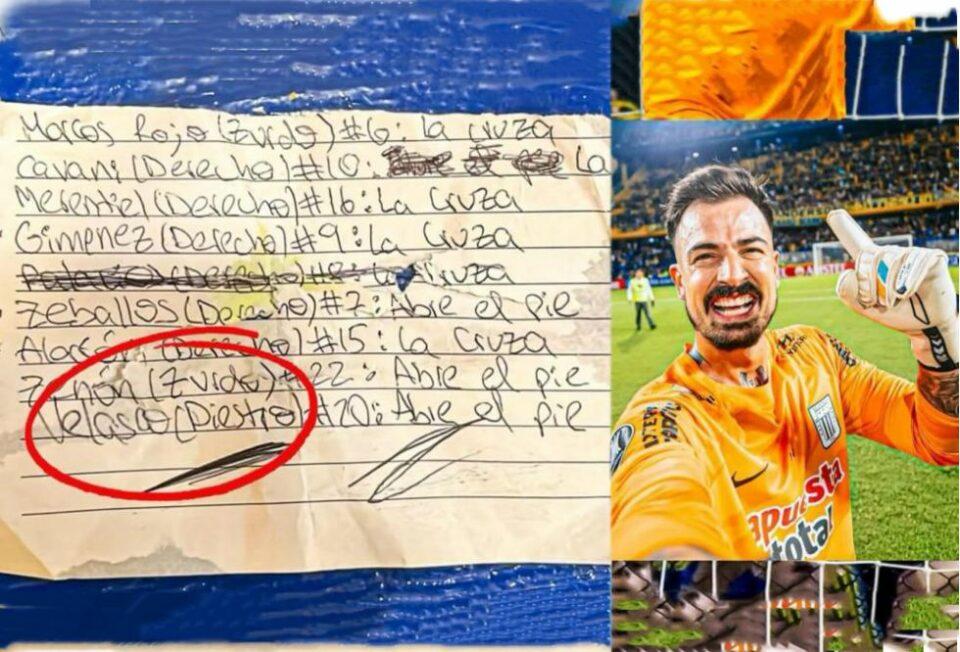 Marcos Rojo (Zurdo) #6: La cruza
Cavani (Derecho) #10: La
Merentiel (Derecho) #16: La cruza
Gimenez (Derecho) #9: La cruza
(Derecho) cruza
Zeballos (Derecho) #7: Abre el pie
(Derecho) #15: La cruza
Zenón (Zurdo) #22: Abre el pie
Velasco (Diestro) #20: Abre el pie
apuesta
total